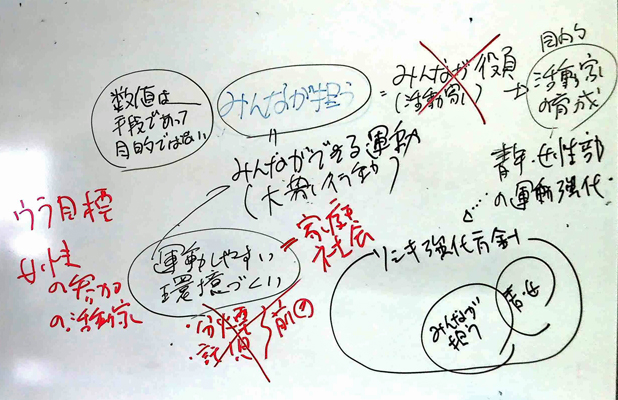 数値は
手段であって
目的ではない
みんなが担う
= みんなが役員
(活動家)
→
目的
活動家
の育成
=
みんなができる運動
(大衆行動)
青年・女性部
の運動強化
ウラ目標
女性
の参加
の活動家
運動しやすい
環境づくり
= 家庭
社会
・分煙
・託児
前の
ソシキ強化方針
みんなが
担う
青・女